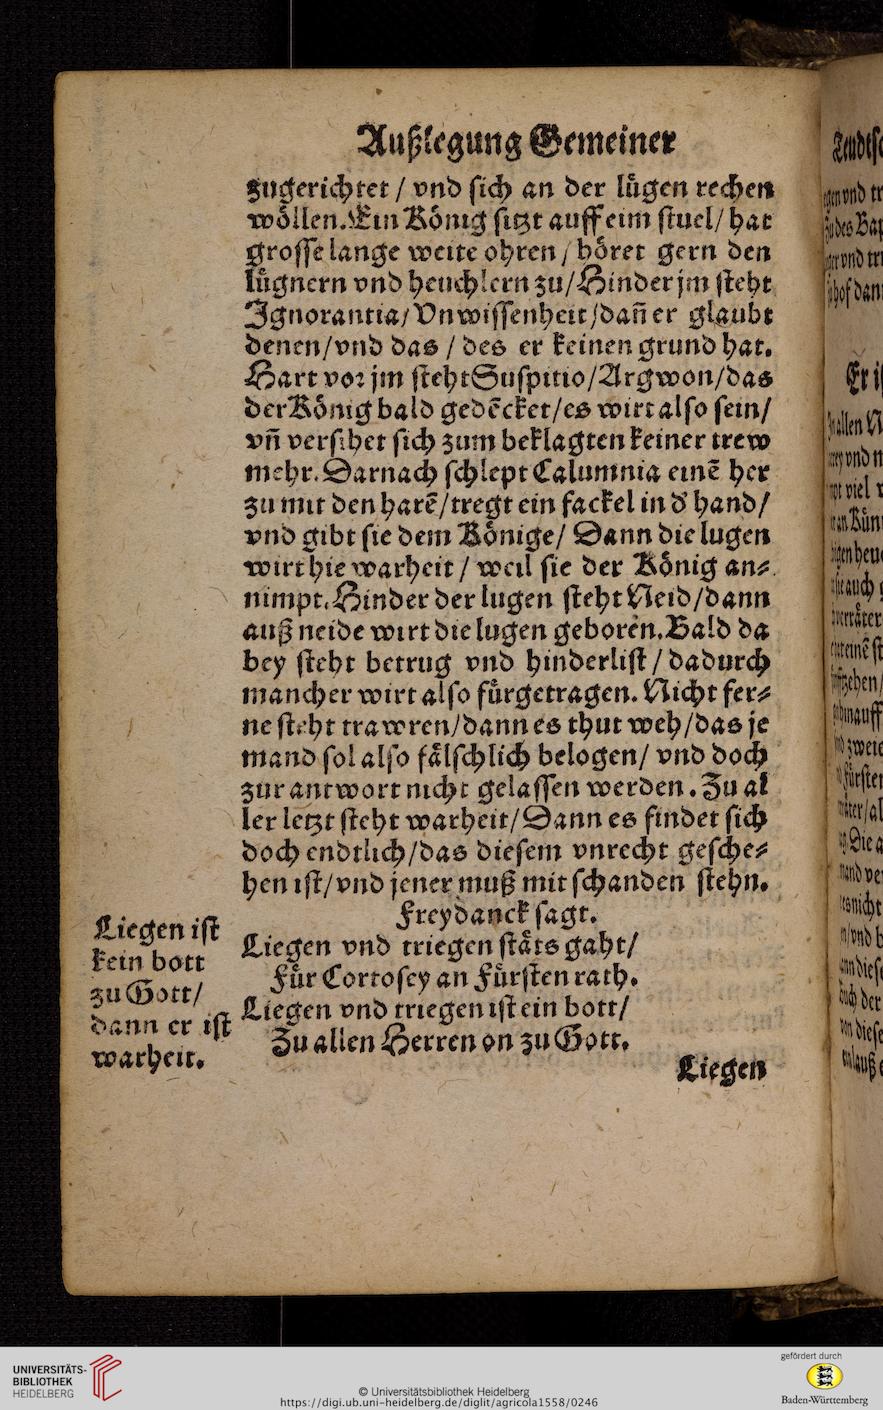 Außlegung Gemeiner
zugerichtet / vnd ſich an der lůgen rechen
wöllen. Ein König ſitzt auff eim ſtuel / hat
groſſe lange weite ohren / höret gern den
lůgnern vnd heuchlern zu / Hinder jm ſteht
Ignorantia / Vnwiſſenheit / dañ er glaubt
denen / vnd das / des er keinen grund hat.
Hart vor jm ſteht Suſpitio / Argwon / das
der König bald gedēcket / es wirt alſo ſein /
vñ verſihet ſich zum beklagten keiner trew
mehr. Darnach ſchlept Calumnia einē her
zu mit den harē / tregt ein fackel in d' hand /
vnd gibt ſie dem Könige / Dann die lugen
wirt hie warheit / weil ſie der König an⸗
nimpt. Hinder der lugen ſteht Neid / dann
auß neide wirt die lugen geboren. Bald da
bey ſteht betrug vnd hinderliſt / dadurch
mancher wirt alſo fůrgetragen. Nicht fer⸗
ne ſteht trawren / dann es thut weh / das je
mand ſol alſo fälſchlich belogen / vnd doch
zur antwort nicht gelaſſen werden. Zu al
ler letzt ſteht warheit / Dann es findet ſich
doch endtlich / das dieſem vnrecht geſche⸗
hen iſt / vnd jener muß mit ſchanden ſtehn.
Freydanck ſagt.
Liegen vnd triegen ſtäts gaht /
Fůr Cortoſey an Fůrſten rath.
Liegen vnd triegen iſt ein bott /
Zu allen Herren on zu Gott.
Liegen
Liegen iſt
kein bott
zu Gott /
dann er iſt
warheit.
UNIVERSITÄTS-
BIBLIOTHEK
HEIDELBERG
© Universitätsbibliothek Heidelberg
https://digi.ub.uni-heidelberg.de/diglit/agricola1558/0246
gefördert durch
Baden-Württemberg